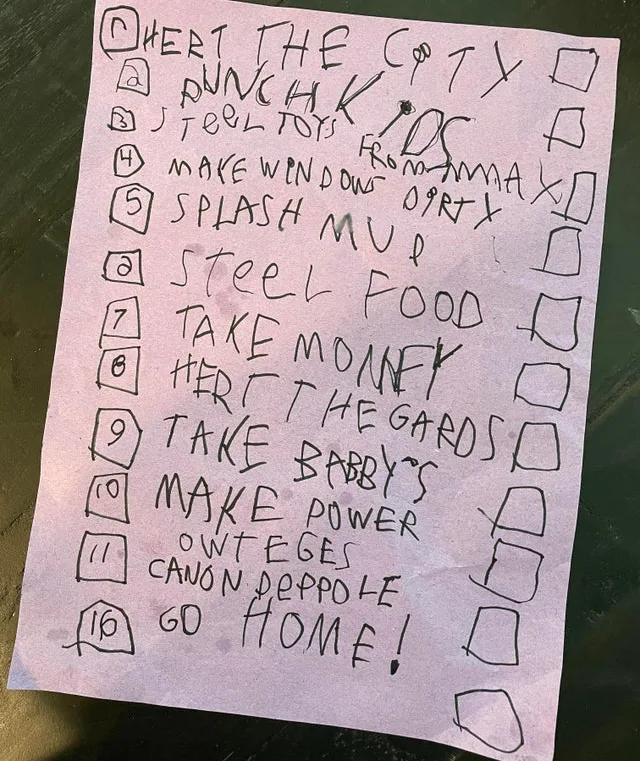 1 HERT THE CITY
2 PUNCH KIDS
3 STEEL TOYS FROM MAX
4 MAKE WINDOWS DIRTY
5 SPLASH MUD
6 STEEL FOOD
7 TAKE MONNEY
8 HERT THE GARDS
9 TAKE BABBY'S
10 MAKE POWER
OWTEGES
11 CANON PEPPOLE
16 GO HOME!